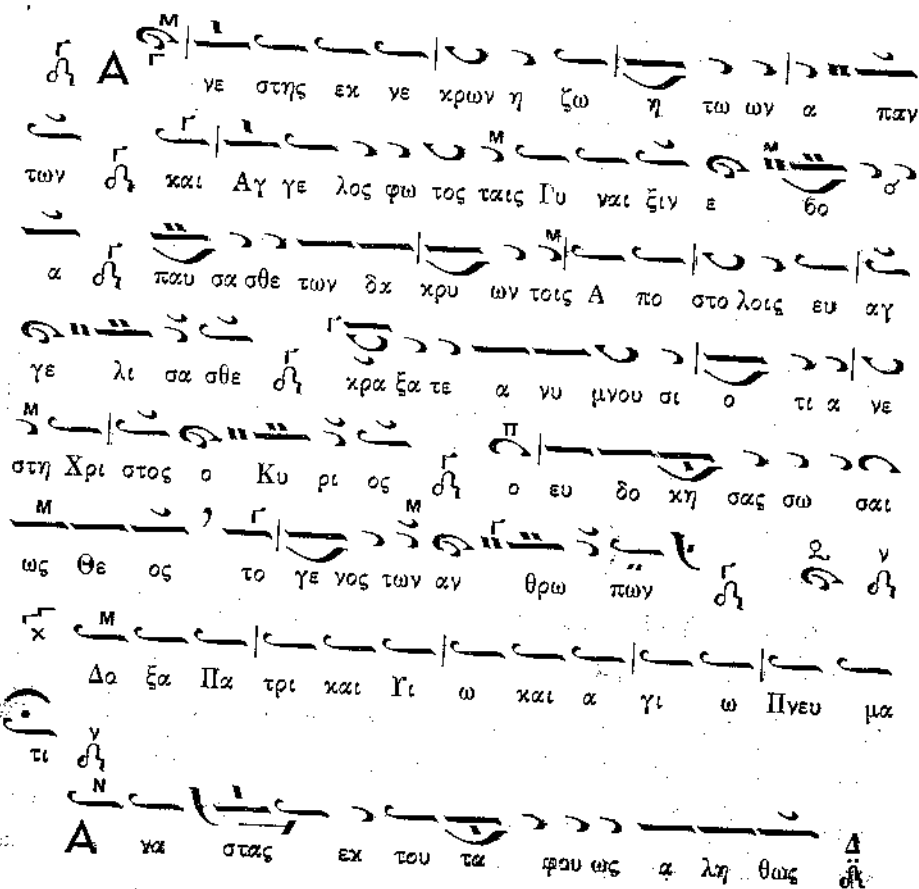 Α νε στης εκ νε κρων η ζω η τω ων α παν
των και Αγ γε λος φω τος ταις Γυ ναι ξιν ε βο
α παυ σα σθε των δα κρυ ων τοις Α πο στο λοις ευ αγ
γε λι σα σθε κρα ξα τε α νυ μνου σι ο τι α νε
στη Χρι στος ο Κυ ρι ος ο ευ δο κη σας σω σαι
ως Θε ος το γε νος των αν θρω πων
Δο ξα Πα τρι και Υι ω και α γι ω Πνευ μα
τι
Α να στας εκ του τα φου ως α λη θως